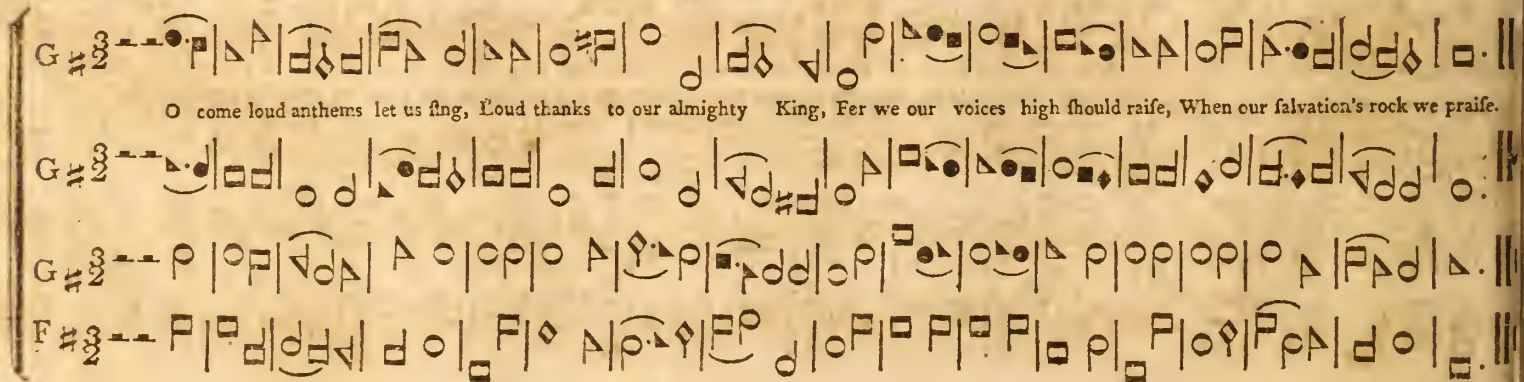 G 3 2
O come loud anthems let us ſing, Loud thanks to our almighty King, Fer we our voices high ſhould raiſe, When our ſalvation's rock we praiſe.
G 3 2
G 3 2
F 3 2